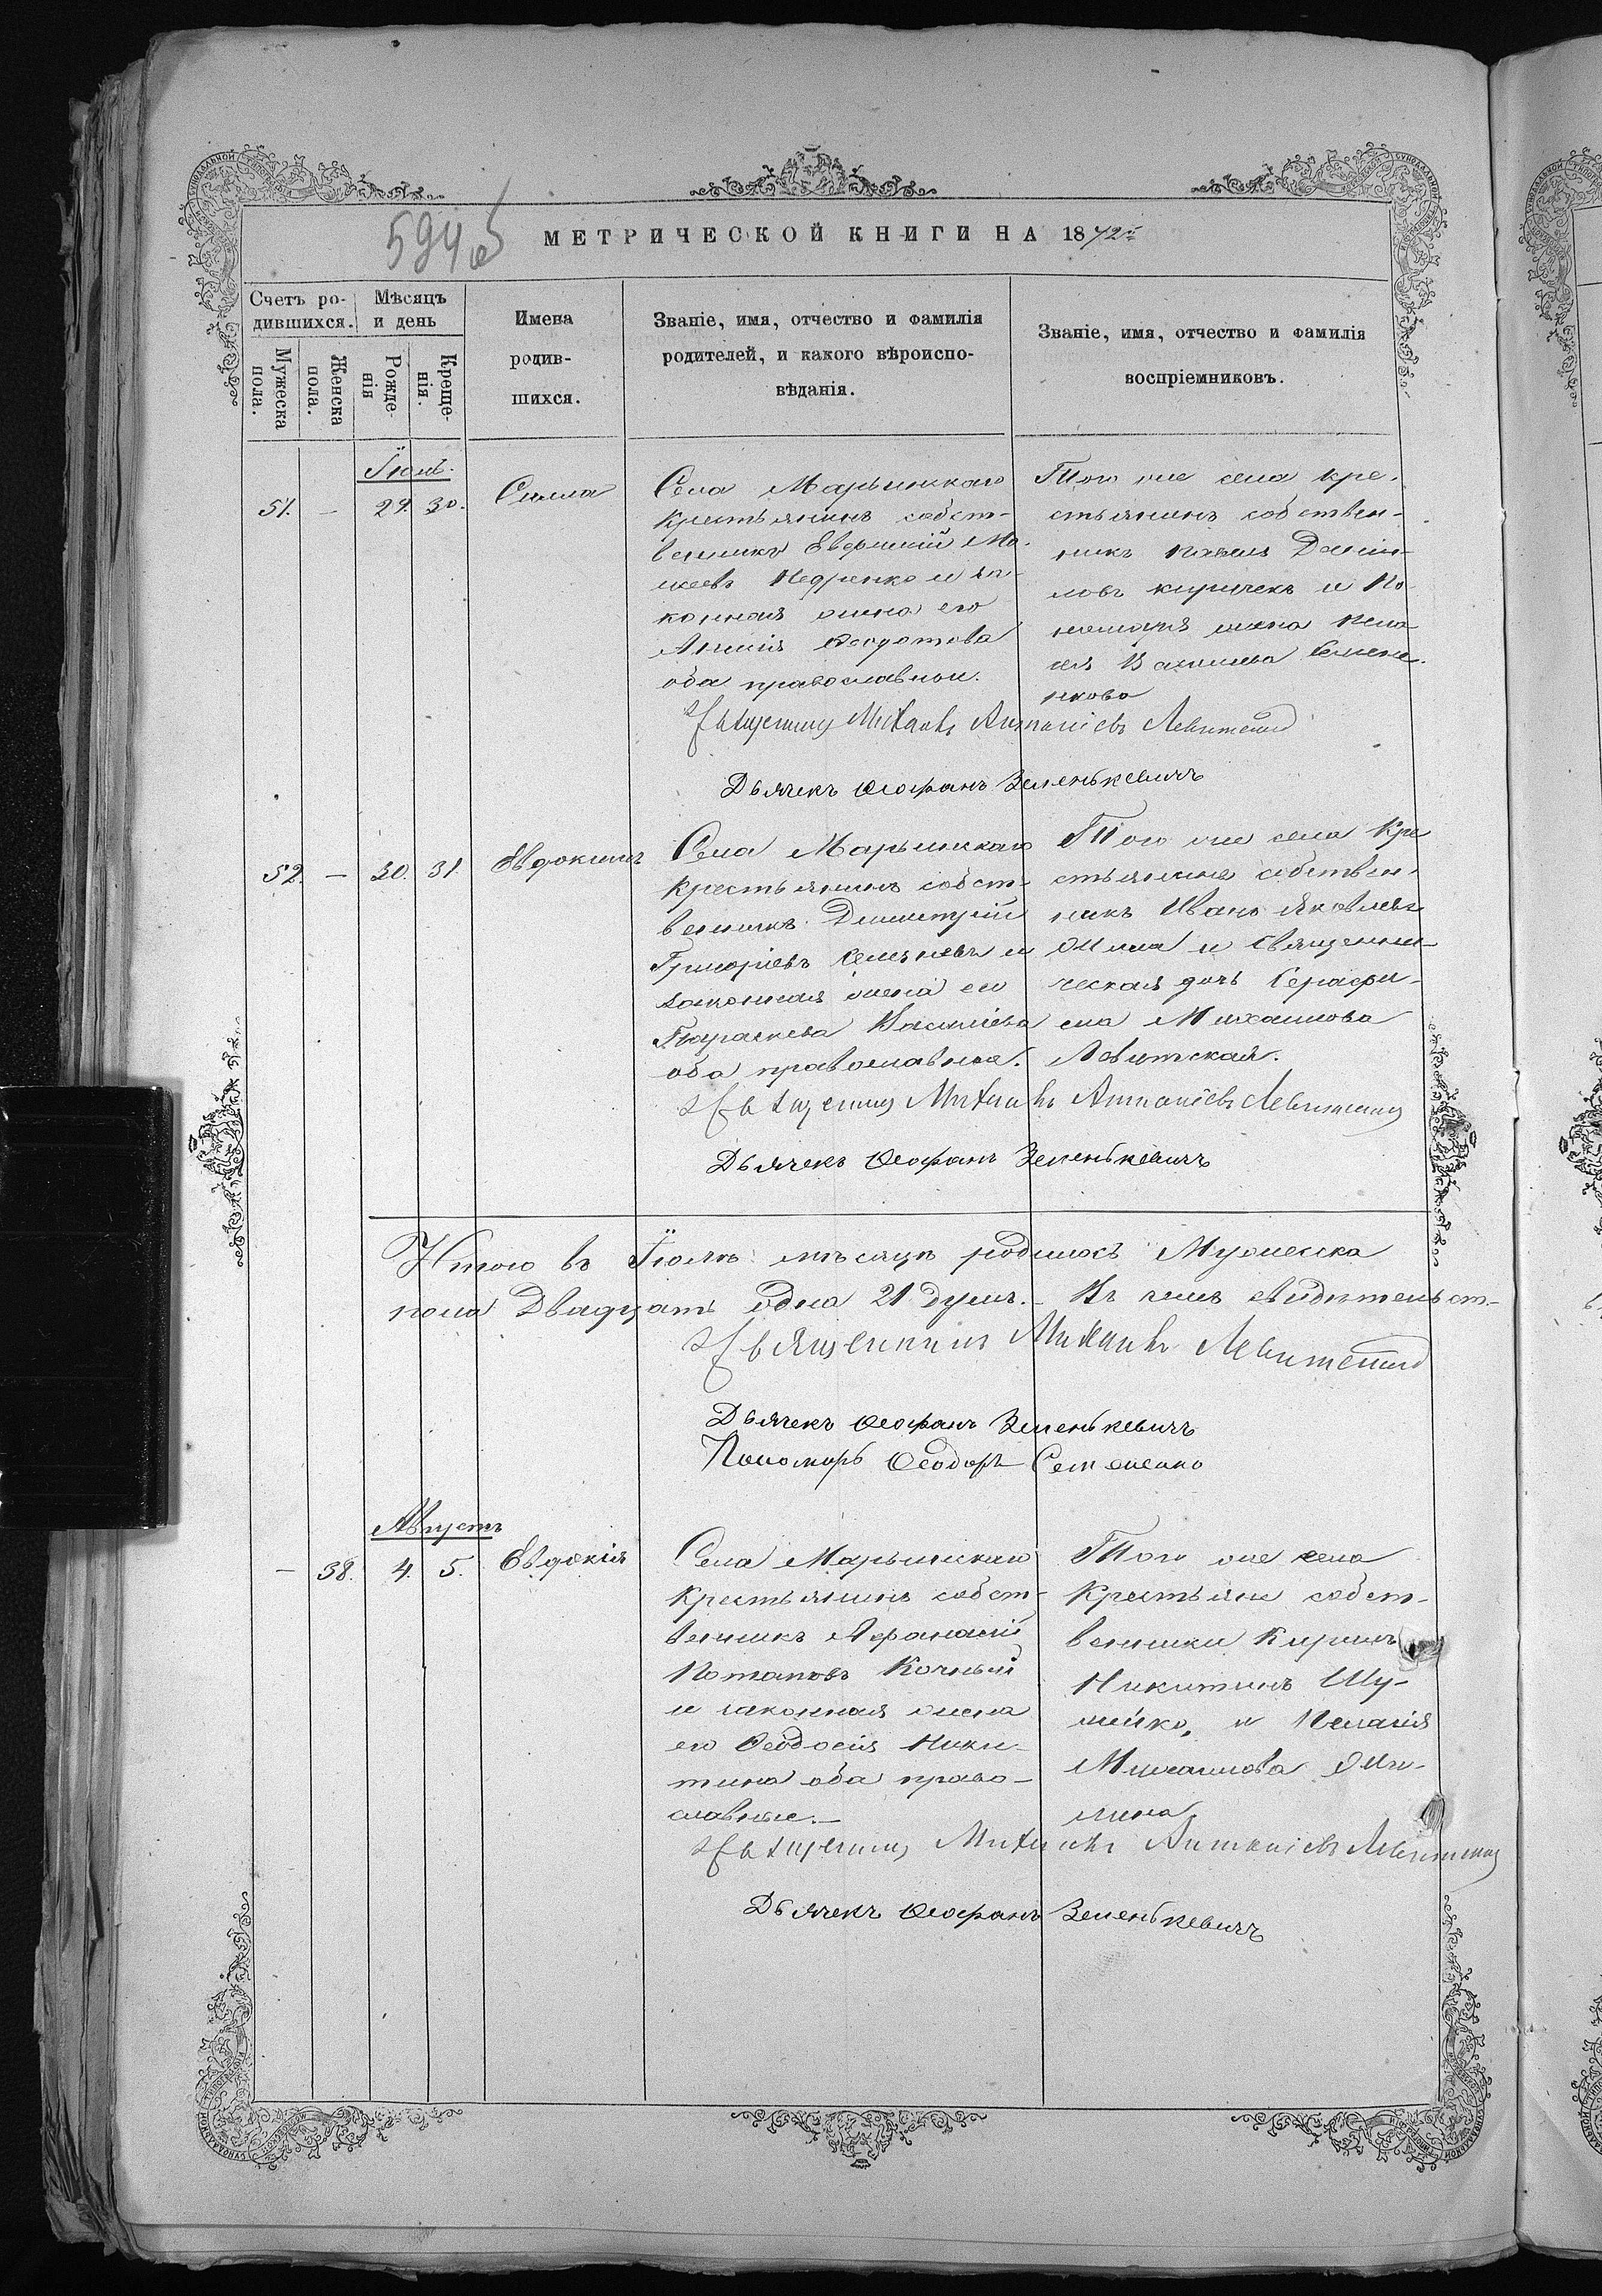 594 об
МЕТРИЧЕСКОЙ КНИГИ НА 1872 г
Счетъ ро-
дившихся.
Мѣсяцъ
и день
Мужеска
пола.
Женска
пола.
Рожде-
нія
Креще-
нія.
Имена
родив-
шихся.
Званіе, имя, отчество и фамилія
родителей, и какого вѣроиспо-
вѣданія.
Званіе, имя, отчество и фамилія
воспріемниковъ.
Іюль.
51. - 29. 30. Силла
Села Марьинскаго
крестьянинъ собст-
венникъ Мо-
исеевъ Педченко и за-
конная жена его
Ѳеодотова
оба православнои.
Того же села кре-
стьянинъ собствен-
никъ Дании-
ловъ киричекъ и По-
жена Пела-
гея Семене-
нкова
Священникъ Михаилъ Антоніевъ Левитскій
Дьячекъ Ѳеофанъ Зеленькевичъ
52. - 30. 31. Евдокимъ
Села Марьинскаго
крестьянинъ собст-
венникъ Димитрій
Григоріевъ и
законная жена его
Параскева Василіева
оба православные.
Того же села Кре
стьянинъ собствен-
никъ Иванъ Яковлевъ
и Священни-
ческая дочь Серафи-
ма Михаилова
Левитская.
Священникъ Михаилъ Антоніевъ Левитскій
Дьячекъ Ѳеофанъ Зеленькевичъ
Итого въ Іюлѣ мѣсяцѣ родилось Мужеска
пола Двадцать одна 21 душъ. - Въ чемъ свидѣтельст-
Священникъ Михаилъ Левитскій
Дьячекъ Ѳеофанъ Зеленькевичъ
Пономарь Ѳеодоръ
Августъ
- 38. 4. 5. Евдокія
Села Марьинскаго
Крестьянинъ собст-
венникъ Афанасій
Потаповъ Кочный
и законная жена
его Ѳеодосія Ники-
тина оба право-
славные. -
Того же села
Крестьяне собст-
венники Кирилъ
Никитинъ Шу-
лейко, и Пелагія
Михаилова
лина
Священникъ Михаилъ Антоніевъ Левитскій
Дьячекъ Ѳеофанъ Зеленькевичъ